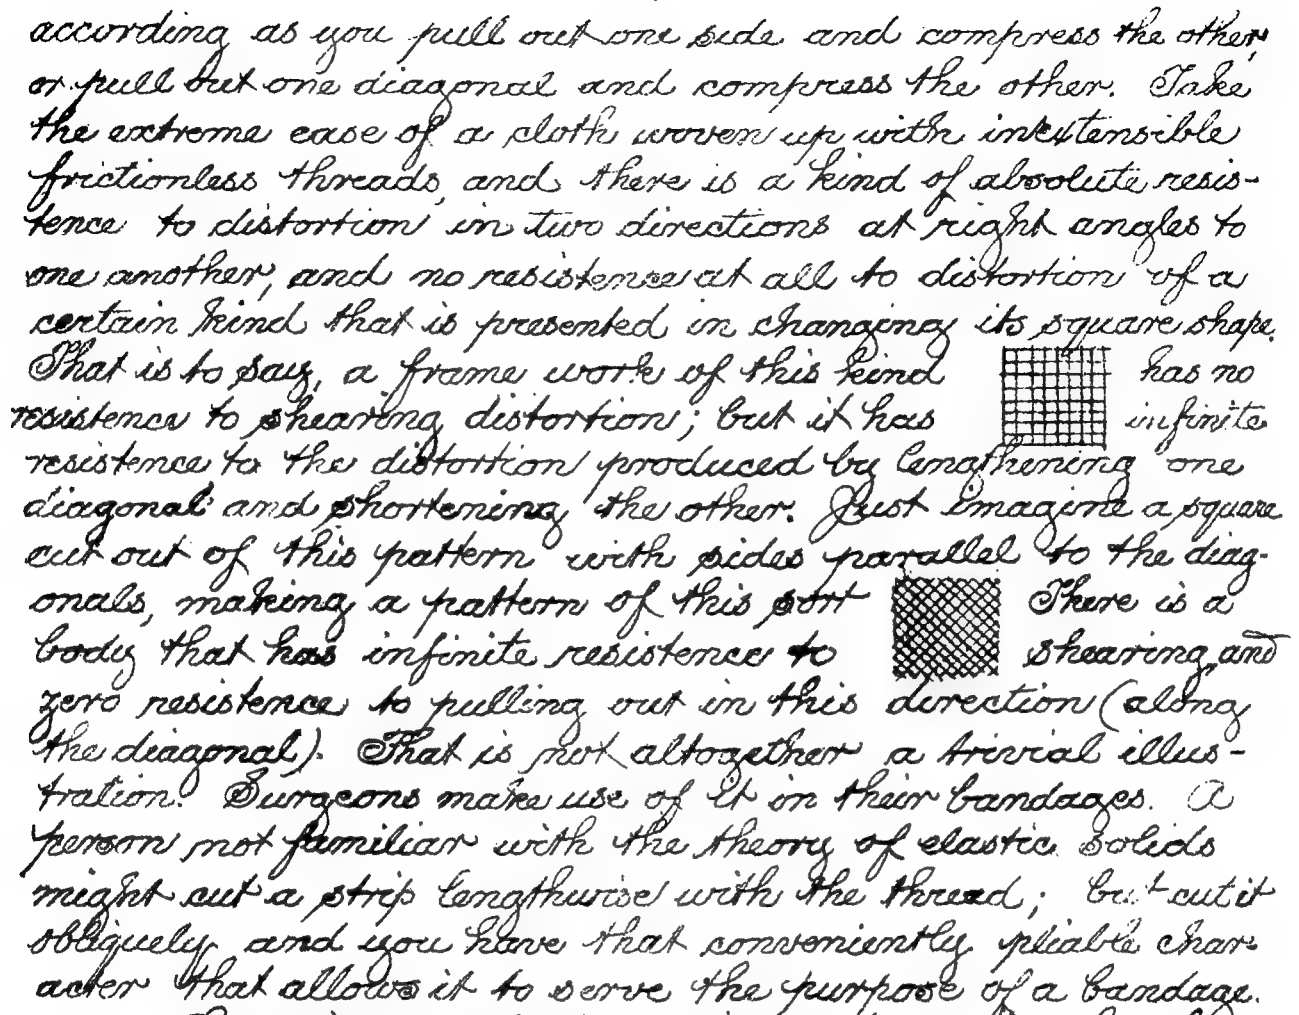 according as you pull out one side and compress the other,
or pull out one diagonal and compress the other. Take
the extreme case of a cloth woven up with inextensible
frictionless threads, and there is a kind of absolute resis-
tence to distortion in two directions at right angles to
one another, and no resistence at all to distortion of a
certain kind that is presented in changing its square shape.
That is to say, a frame work of this kind has no
resistence to shearing distortion; but it has infinite
resistence to the distortion produced by lengthening one
diagonal and shortening the other. Just imagine a square
cut out of this pattern with sides parallel to the diag-
onals, making a pattern of this sort There is a
body that has infinite resistence to shearing, and
zero resistence to pulling out in this direction (along
the diagonal). That is not altogether a trivial illus-
tration. Surgeons make use of it in their bandages. A
person not familiar with the theory of elastic solids
might cut a strip lengthwise with the thread; but cut it
obliquely and you have that conveniently pliable char-
acter that allows it to serve the purpose of a bandage.